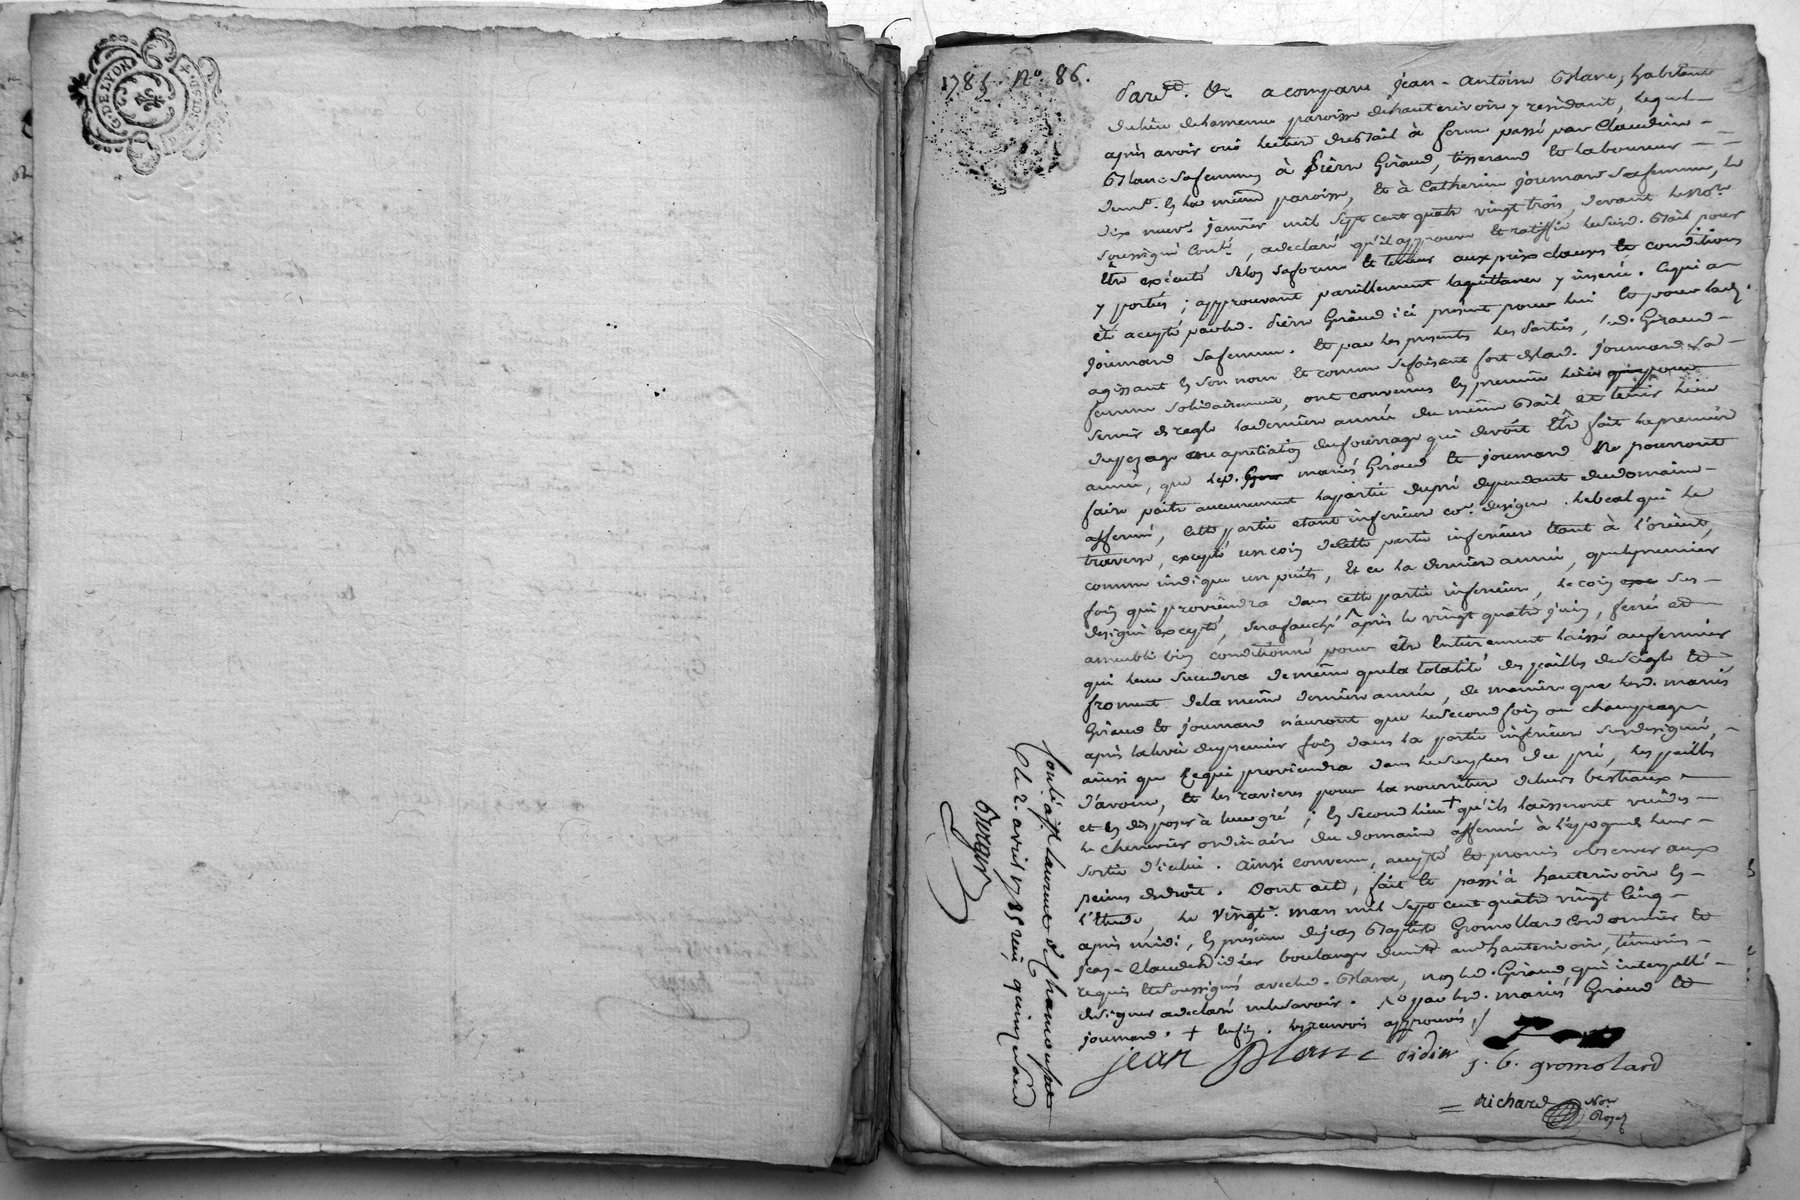 G. DE LYON
1785. N.º 86.
Pardt. &c a comparu jean-antoine Blanc, habitant
du lieu de hamenue paroisse de hauterivoire y residant, lequel
après avoir oui lecture du Bail à ferme passé par Claudine
Blanc sa femme, à pierre Giraud, tisserand et laboureur
dem.t en la même paroisse, et à Catherine joumard sa femme, le
dix neuf janvier mil sept cent quatre vingt trois, devant le no.re
soussigné Con.lé, a declaré qu'il approuve et ratiffie ledit Bail pour
être exécuté selon sa forme et teneur aux prix clauses et conditions
y portés ; approuvant pareillement la quittance y inserée. Ce qui a
été accepté par led. pierre Giraud ici présent pour lui et pour lad.
joumard sa femme. Et par les presentes les parties, led. Giraud
agissant en son nom et comme se faisant fort de lad. joumard sa
femme solidairement, ont convenus en premier lieu que pour
servir de regle la derniere année du même Bail et tenir lieu
du pezage ou apretiation du fourrage qui devoit être fait la premiere
année, que les d. mariés Giraud et joumard Ne pourront
faire paitre aucunement la partie du pré dependant du domaine
affermé, cette partie etant inferieure co.e designe le beal qui le
traverse, excepté un coin de cette partie inferieure etant à l'orient,
comme indique un puits, et ce la derniere année, que le premier
foin qui proviendra dans cette partie inferieure, le coin sus
designé excepté, sera fauché après le vingt quatre juin, serré et
ameubli bien conditionné pour être entierement laissé au fermier
qui leur succedera de même que la totalité des pailles du seigle et
froment de la même derniere année, de maniere que les d. mariés
Giraud et joumard n'auront que le second foin ou champeage
après la levée du premier foin dans la partie inferieure susdesignée,
ainsi que ce qui proviendra dans le surplus du pré, les pailles
d'avoine, et les ravieres pour la nourriture de leurs bestiaux
et en disposer à leur gré ; en second lieu + qu'ils laisseront vuides
le chenevier ordinaire du domaine affermé à l'epoque de leur
sortie d'icelui. Ainsi convenu, accepté et promis observer aux
peines de droit. Dont acte, fait et passé à hauterivoire en
l'etude, le vingt. mars mil sept cent quatre vingt cinq
après midi, en presence de jean Baptiste Gromollard Cordonnier et
jean-Claude Didier boulanger dem.t aud hauterivoire, temoins
requis et soussignés avec led. Blanc, non led. Giraud qui interpellé
de signer a declaré ne le savoir. par led. mariés Giraud et
joumard. + enfin. les renvois approuvés./
jean Blanc didier j. b. gromolard
= richard No.re Royal
Con.lé à St. laurent de Chamousset
le 2. avril 1785 reçu quinze sols
Berger